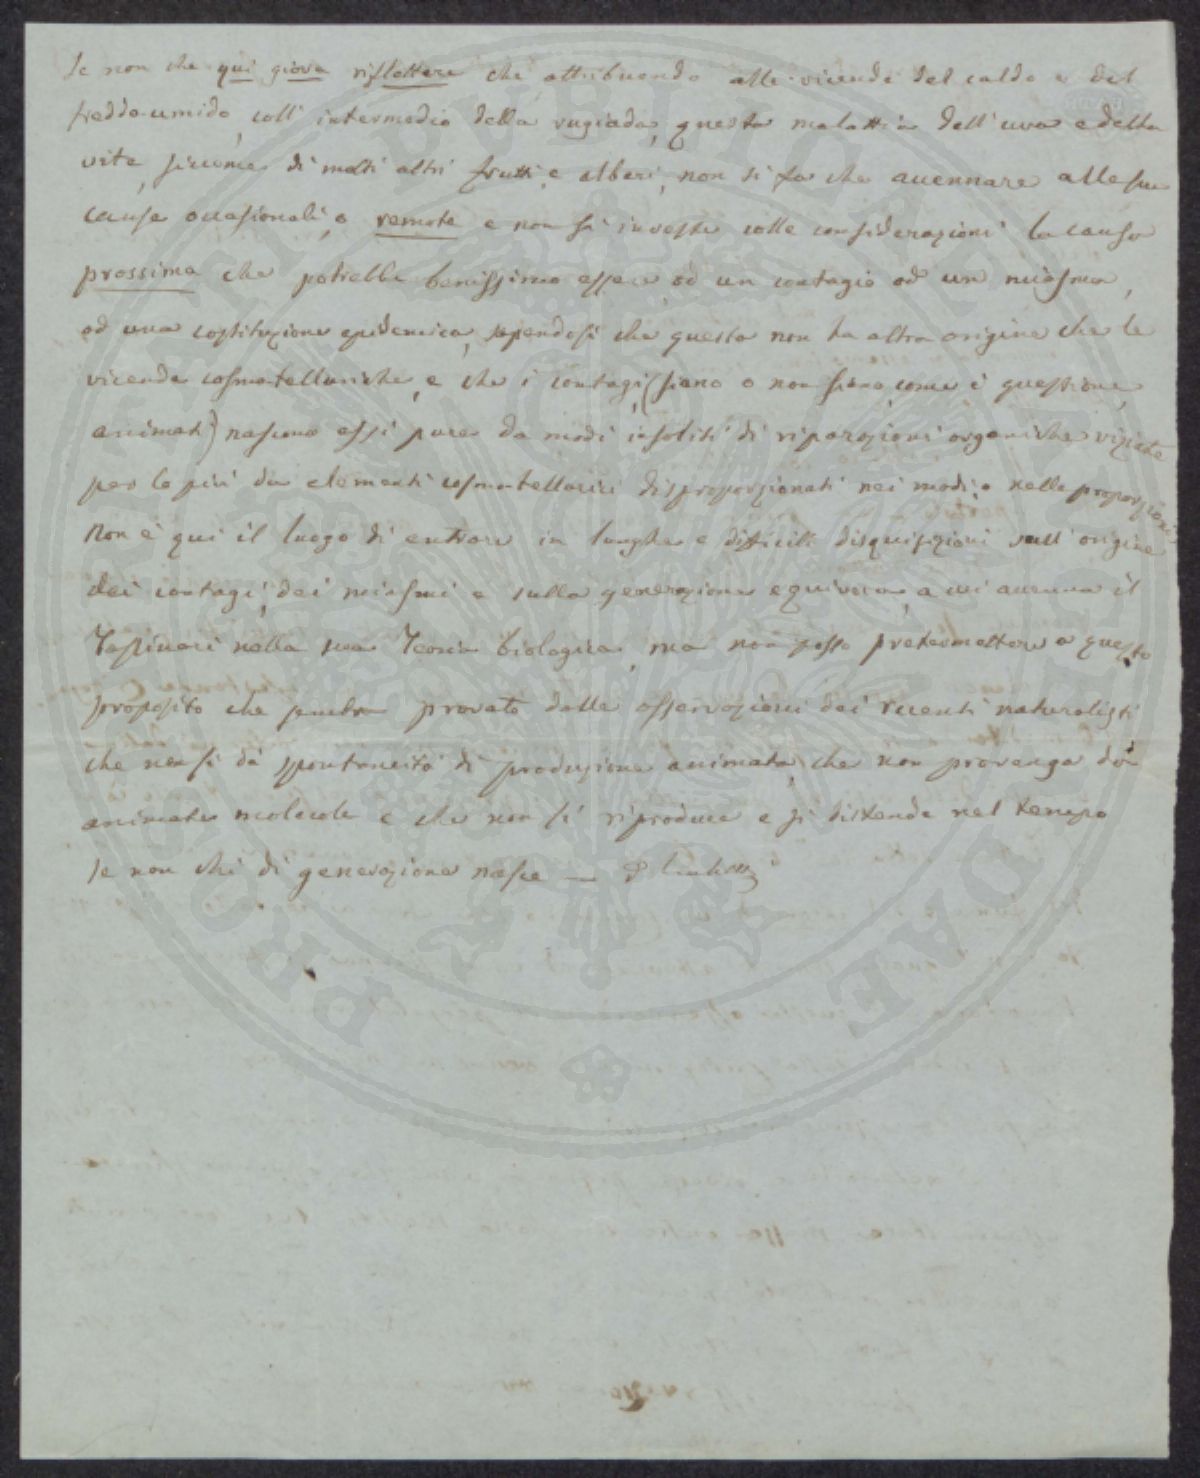 Se non che qui giova riflettere che attribuendo alle vicende del caldo e del
freddo-umido, coll' intermedio della rugiada, questa malattia dell'uva e della
vite, siccome di molti altri frutti e alberi, non si fa che accennare alle sue
cause occasionali, o remote e non si investe colle considerazioni la causa
prossima che potrebbe benissimo essere od un contagio od un miasma,
od una costituzione epidemica, sapendosi che questa non ha altra origine che le
vicende cosmotelluriche, e che i contagi, (siano o non siano, come è questione,
animati) nascono essi pure da modi insoliti di riparazioni organiche viziate
per lo più da elementi cosmotellurici disproporzionati nei modi, o nelle proporzioni
Non è qui il luogo di entrare in lunghe e difficili disquisizioni sull' origine
dei contagi, dei miasmi e sulla generazione equivoca, a cui accenna il
Tassinari nella sua Teoria biologica, ma non posso pretermettere a questo
proposito che sembra provato dalle osservazioni dei recenti naturalisti
che non si dà spontaneità di produzione animata, che non provenga da
animate molecole e che non si riproduce e si distende nel tempo
se non chi di generazione nasce —
PROSPERITATI PUBLICAE AUGENDAE